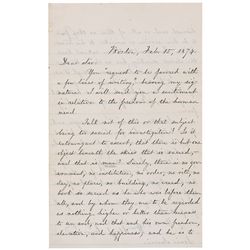 Boston, Feb. 15, 1874.
Dear Sir:
You "request to be favored with
a few lines of writing," bearing my sig-
nature. I will send you a sentiment
in relation to the freedom of the human
mind.
Talk not of this or that subject
being too sacred for investigation! Is it
extravagant to assert, that there is but one
object beneath the skies that is sacred,—
and that is man? Surely, there is no gov-
ernment, no institution, no order, no rite, no
day, no place, no building, no creed, no
book so sacred as he who was before them
all, and by whom they are to be regarded
as nothing higher or better than means
to an end, and that end his own freedom,
elevation, and happiness; and he is to